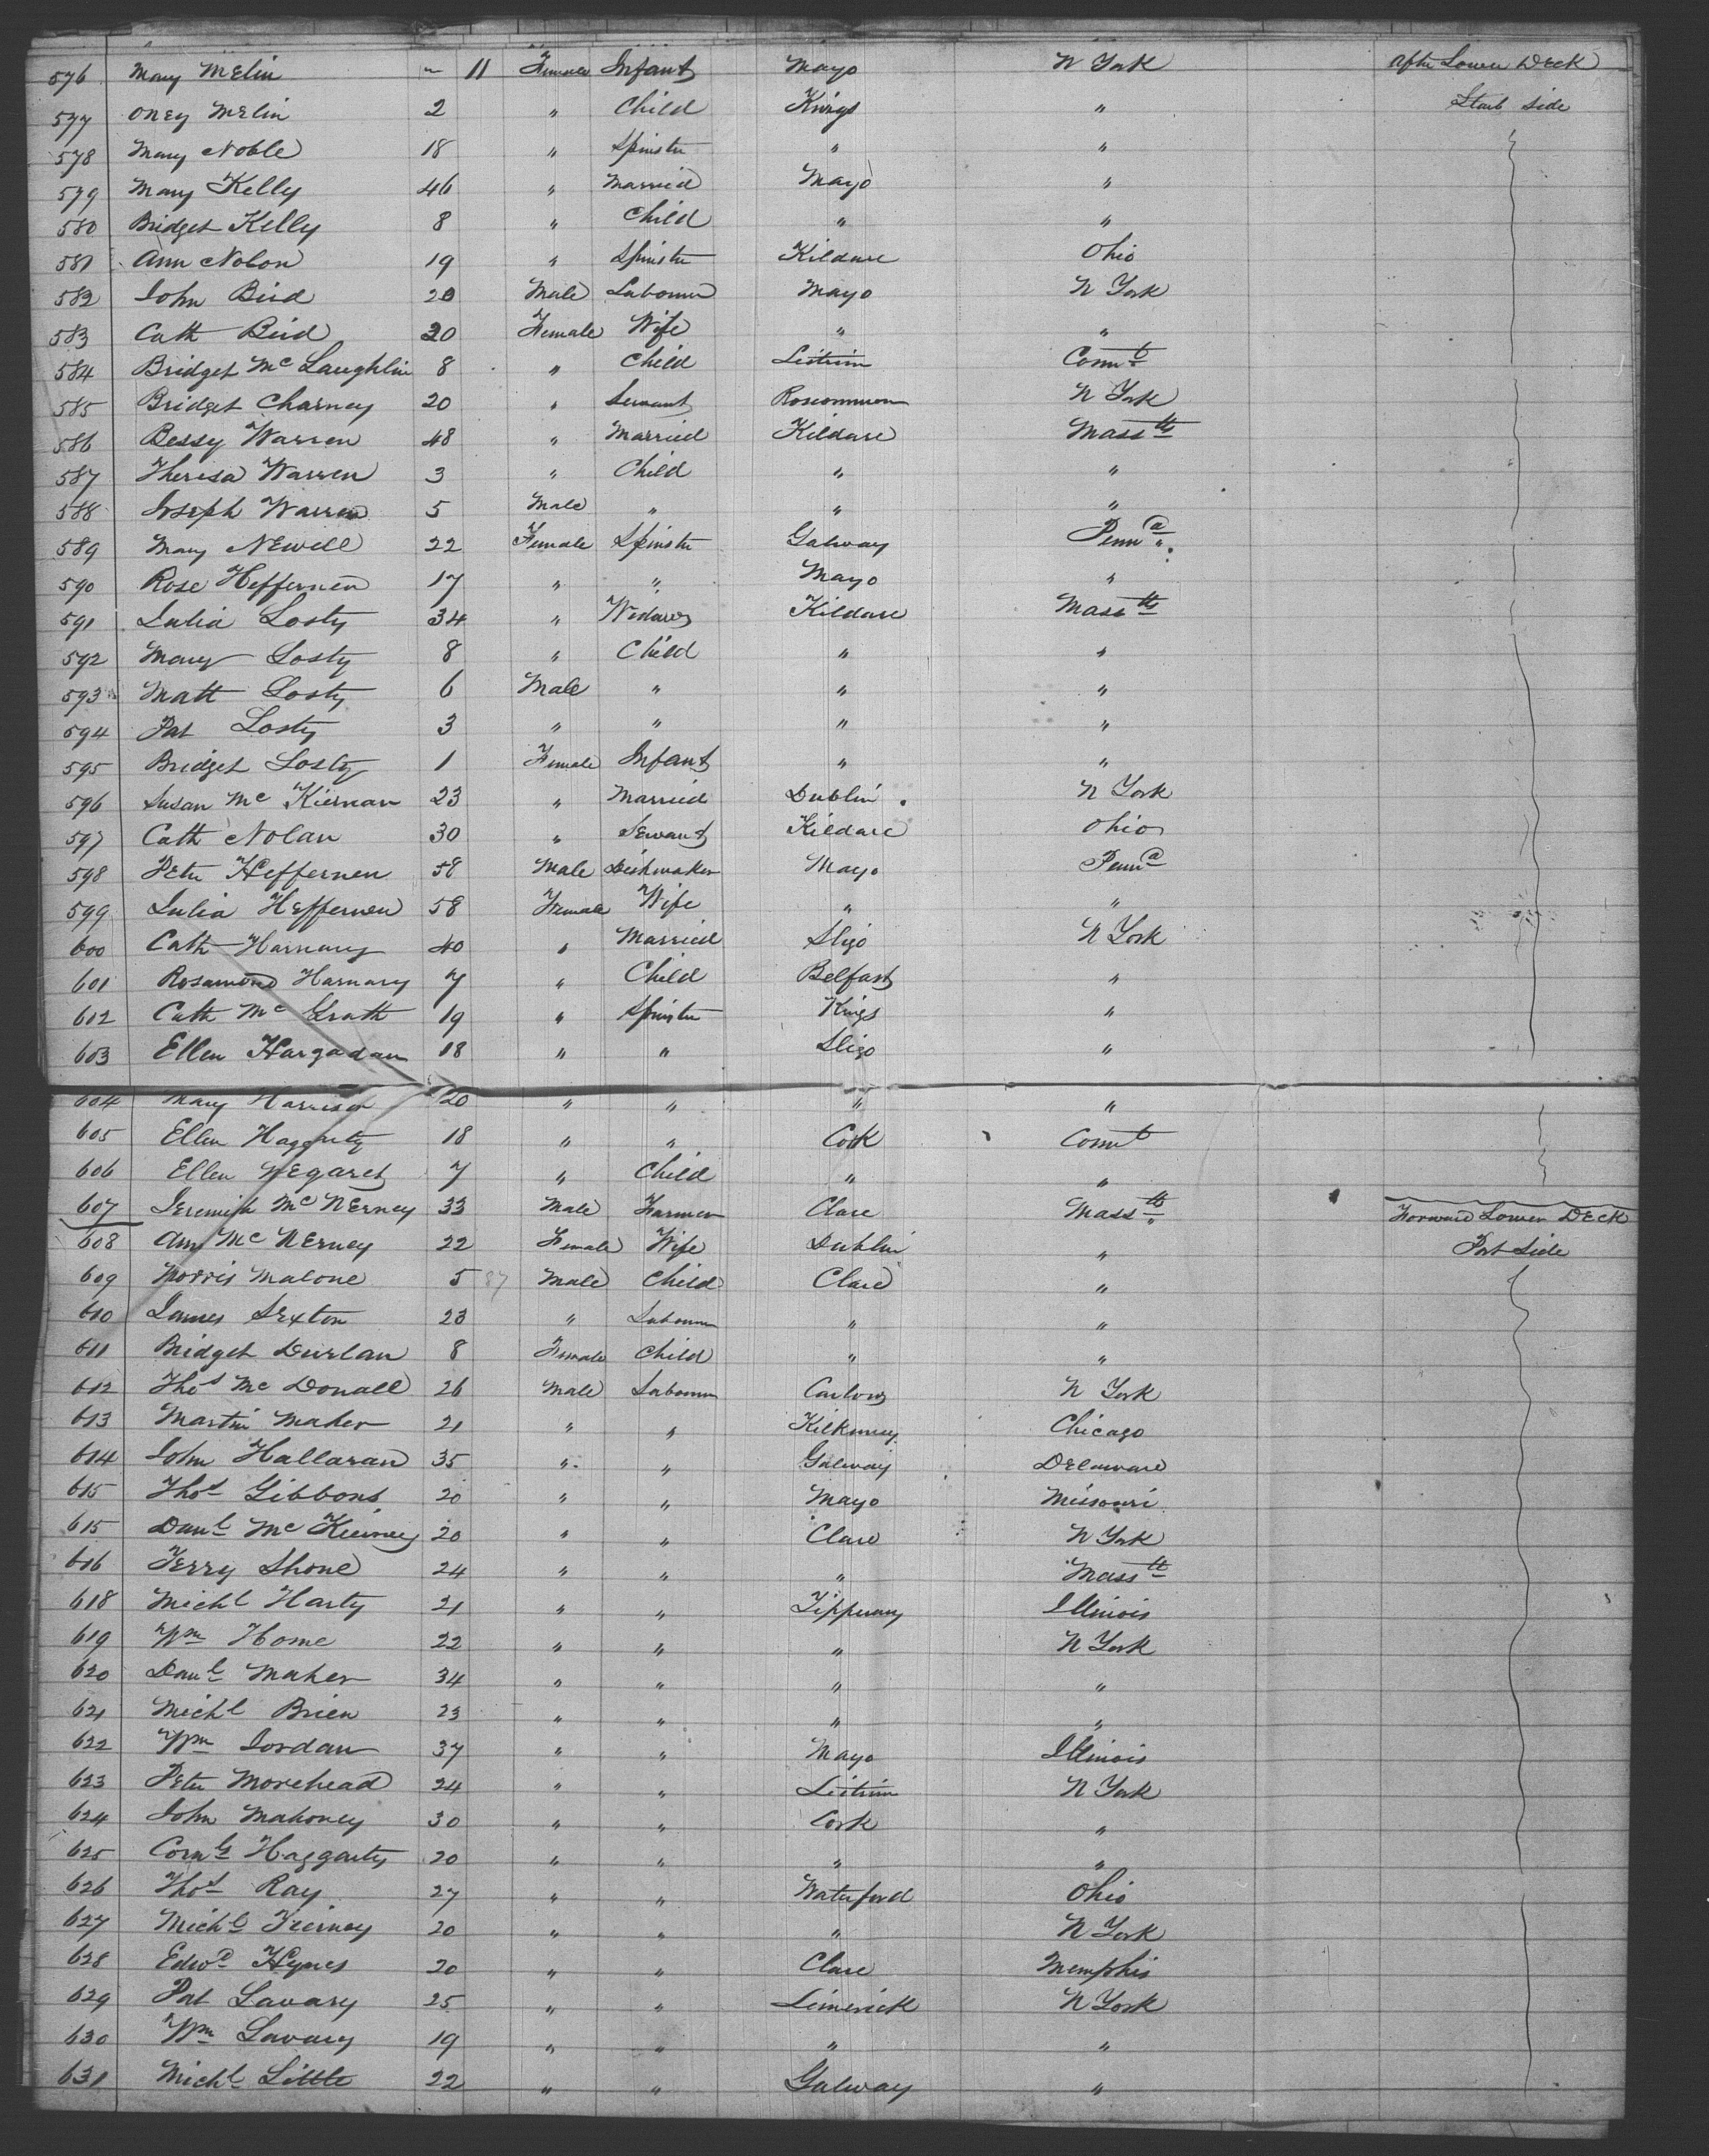 576 Mary Melin ~ 11 Female Infant Mayo N York After Lower Deck
577 Oney Melin 2 " Child Kings " Starb Side
578 Mary Noble 18 " Spinster " "
579 Mary Kelly 46 " Married Mayo "
580 Bridget Kelly 8 " Child " "
581 Ann Nolon 19 " Spinster Kildare Ohio
582 John Bird 20 Male Labourer Mayo N York
583 Cath Bird 20 Female Wife " "
584 Bridget McLaughlin 8 " Child Leitrim Connt
585 Bridget Charney 20 " Servant Roscommon N York
586 Bessy Warren 48 " Married Kildare Massts
587 Theresa Warren 3 " Child " "
588 Joseph Warren 5 Male " " "
589 Mary Newell 22 Female Spinster Galway Penna
590 Rose Heffernen 17 " " Mayo "
591 Julia Losty 34 " Widow Kildare Massts
592 Mary Losty 8 " Child " "
593 Matt Losty 6 Male " " "
594 Pat Losty 3 " " " "
595 Bridget Losty 1 Female Infant " "
596 Susan McKiernan 23 " Married Dublin N York
597 Cath Nolan 30 " Servant Kildare Ohio
598 Peter Heffernen 58 Male Mayo Penna
599 Julia Heffernen 58 Female Wife " "
600 Cath Harnary 40 " Married Sligo N York
601 Rosamond Harnary 7 " Child Belfast "
602 Cath McGrath 19 " Spinster Kings "
603 Ellen Hargadan 18 " " Sligo "
604 Mary Harrison 20 " " " "
605 Ellen Haggarty 18 " " Cork Connt
606 Ellen Negaret 7 " Child " "
607 Jeremiah McNerney 33 Male Farmer Clare Massts Forward Lower Deck
608 Ann McNerney 22 Female Wife Dublin " Port Side
609 Morris Malone 5 87 Male Child Clare "
610 James Sexton 23 " Labourer " "
611 Bridget Durlan 8 Female Child " "
612 Thos McDonall 26 Male Labourer Carlow N York
613 Martin Maher 21 " " Kilkenney Chicago
614 John Hallaran 35 " " Galway Delaware
615 Thos Gibbons 20 " " Mayo Missouri
615 Danl McKierney 20 " " Clare N York
616 Terry Shone 24 " " " Massts
618 Michl Harty 21 " " Tipperary Illinois
619 Wm Home 22 " " " N York
620 Danl Maher 34 " " " "
621 Michl Brien 23 " " " "
622 Wm Jordan 37 " " Mayo Illinois
623 Peter Morehead 24 " " Leitrim N York
624 John Mahoney 30 " " Cork "
625 Corns Haggarty 20 " " " "
626 Thos Ray 27 " " Waterford Ohio
627 Michl Tierney 20 " " " N York
628 Edwd Hynes 20 " " Clare Memphis
629 Pat Lavary 25 " " Limerick N York
630 Wm Lavary 19 " " " "
631 Michl Little 22 " " Galway "